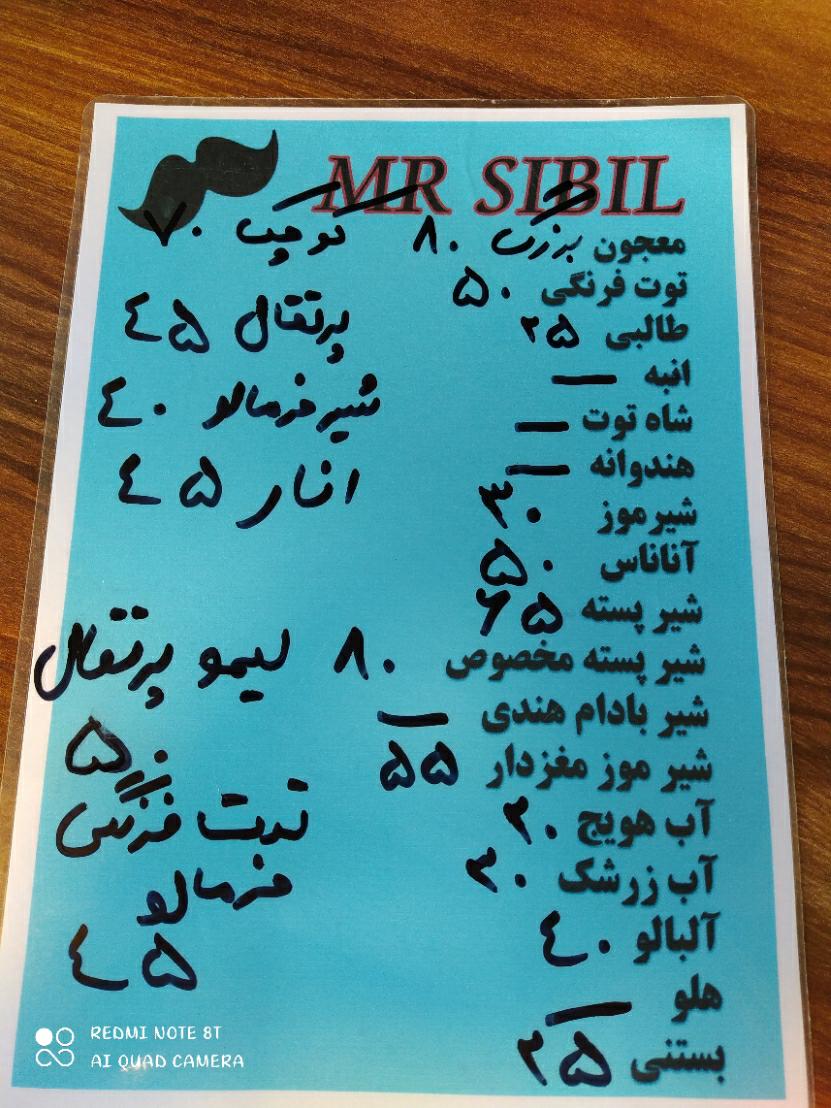 MR SIBIL
معجون بزرگ ۸۰ کوچک ۷۰
توت فرنگی ۵۰
طالبی ۲۵
انبه —
شاه توت —
هندوانه —
شیرموز ۳۰
آناناس ۵۰
شیر پسته ۶۵
شیر پسته مخصوص ۸۰
شیر بادام هندی —
شیر موز مغزدار ۵۵
آب هویج ۲۰
آب زرشک ۳۰
آلبالو ۴۰
هلو —
بستنی ۲۵
پرتقال ۴۵
شیرخرمالو ۴۰
انار ۴۵
لیمو پرتقال
۵۰
توت فرنگی
خرمالو
۴۵
REDMI NOTE 8T
AI QUAD CAMERA